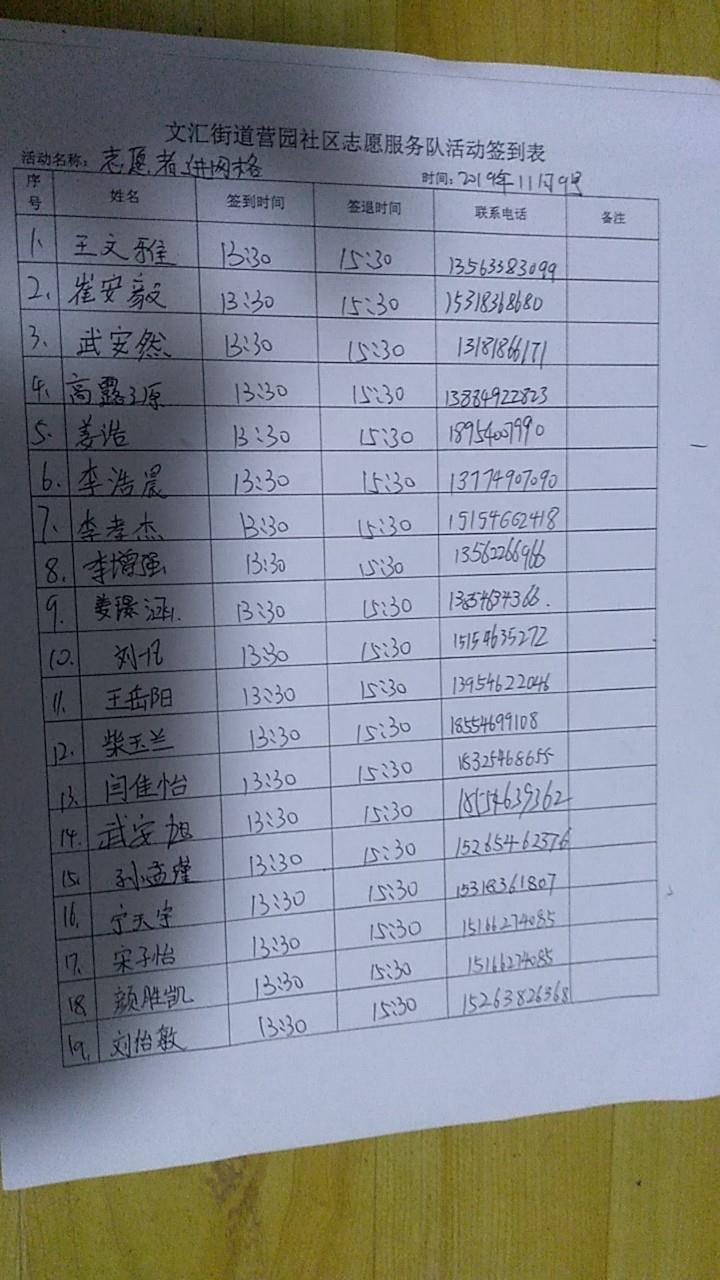 文汇街道营园社区志愿服务队活动签到表
活动名称：志愿者进网格 时间：2019年11月9号
序号 姓名 签到时间 签退时间 联系电话 备注
1. 王文雅 13:30 15:30 13563383099
2. 崔安毅 13:30 15:30 15318368680
3. 武安然 13:30 15:30 13181866171
4. 高露源 13:30 15:30 13884922823
5. 姜浩 13:30 15:30 18954007990
6. 李浩晨 13:30 15:30 13774907090
7. 李孝杰 13:30 15:30 15154662418
8. 李增强 13:30 15:30 13562266966
9. 姜璟涵 13:30 15:30 13854634366.
10. 刘一凡 13:30 15:30 15154635272
11. 王岳阳 13:30 15:30 13954622046
12. 柴玉兰 13:30 15:30 18554699108
13. 闫佳怡 13:30 15:30 18325468655
14. 武安旭 13:30 15:30 18554639362
15. 孙孟瑾 13:30 15:30 15265462376
16. 宁天宇 13:30 15:30 15318361807
17. 宋子怡 13:30 15:30 15166274085
18 颜胜凯 13:30 15:30 15166274085
19. 刘怡敏 13:30 15:30 15263826368